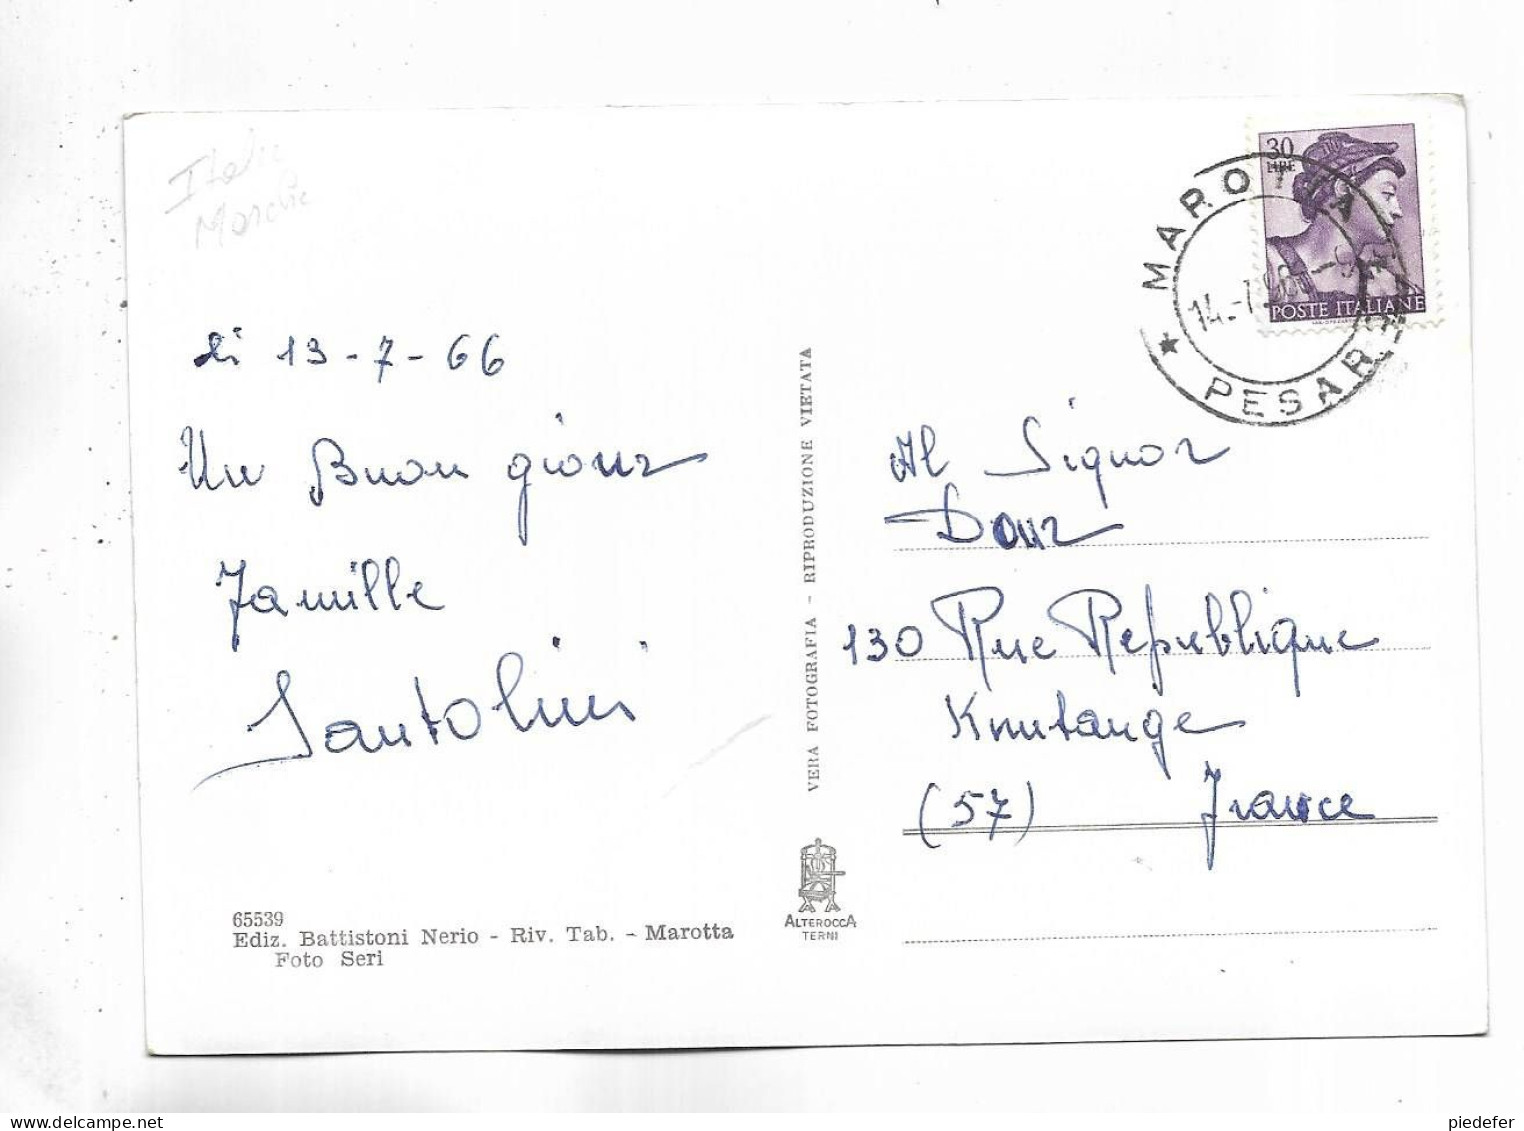 Italie
Marche
di 13-7-66
Un Buon giour
Famille
Santolini
65539
Ediz. Battistoni Nerio - Riv. Tab. - Marotta
Foto Seri
VERA FOTOGRAFIA - RIPRODUZIONE VIETATA
ALTEROCCA
TERNI
30
LIRE
POSTE ITALIANE
MAROTTA
PESARO
Al Signor
130 Rue Republique
Knutange
(57) France
piedefer